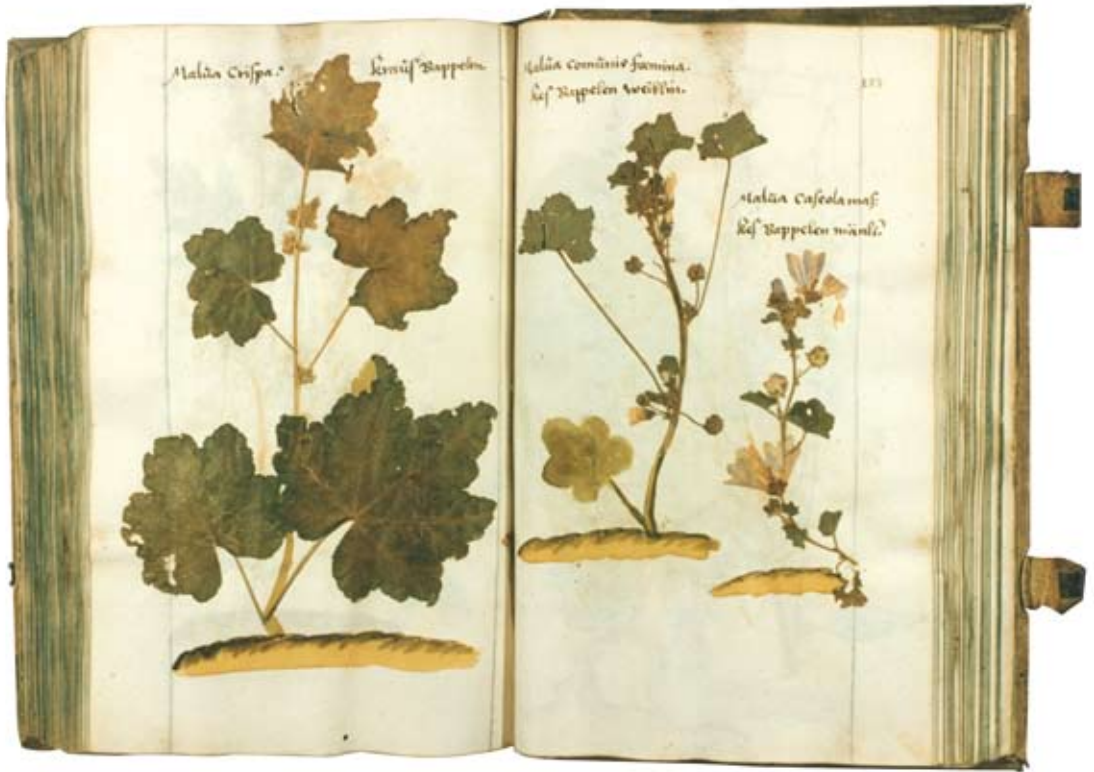 Malũa Crispa.
Krauß Pappelen
Malũa comũnis fœmina.
Keß Pappelen weiblin.
Malũa Caseola mas:
Keß Pappelen mänli: